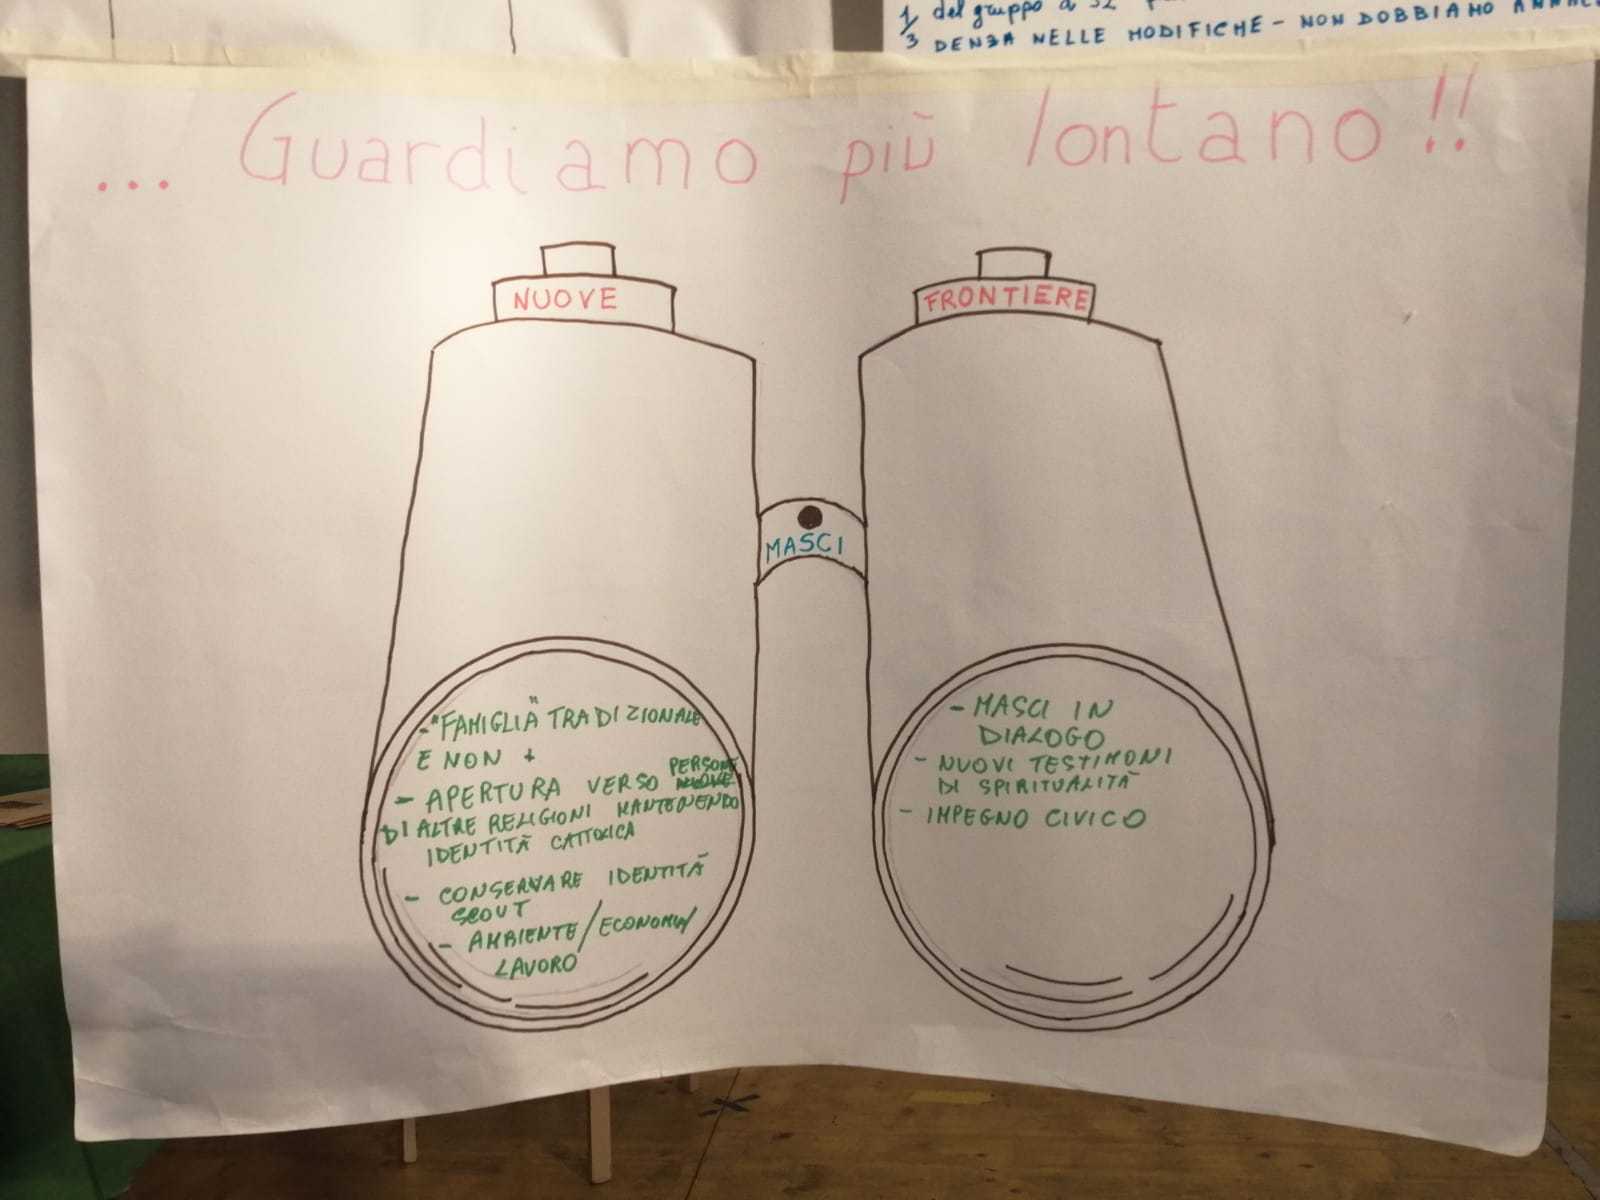 1/3 del gruppo a 32
DENZA NELLE MODIFICHE - NON DOBBIAMO
... Guardiamo più lontano!!
NUOVE
FRONTIERE
MASCI
- "FAMIGLIA" TRADIZIONALE
E NON +
- APERTURA VERSO PERSONE
DI ALTRE RELIGIONI MANTENENDO
IDENTITÀ CATTOLICA
- CONSERVARE IDENTITÀ
SCOUT
- AMBIENTE/ECONOMIA/
LAVORO
- MASCI IN
DIALOGO
- NUOVI TESTIMONI
DI SPIRITUALITÀ
- IMPEGNO CIVICO